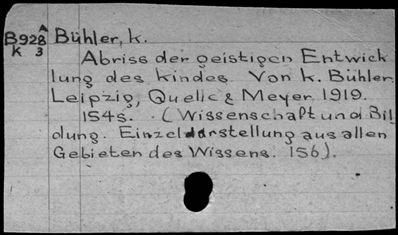 A
B928 Bühler, k.
k 3
Abriss der geistigen Entwick
lung des kindes Von k. Bühler,
Leipzig, Quelle & Meyer, 1919.
154s. (Wissenschaft und Bil
dung. Einzeldarstellung aus allen
Gebieten des Wissens. 156).